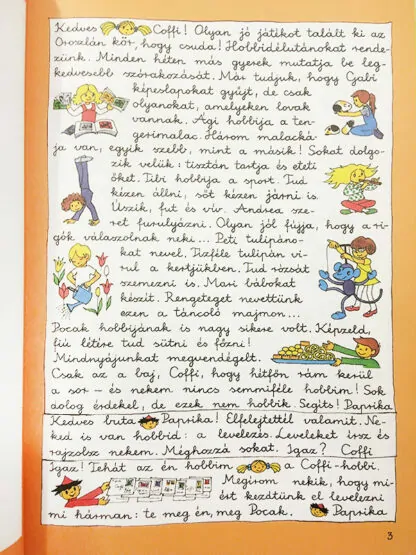 Kedves Coffi! Olyan jó játékot talált ki az
Oroszlán kör, hogy csuda! Hobbidélutánokat rende-
zünk. Minden héten más gyerek mutatja be leg-
kedvesebb szórakozását. Már tudjuk, hogy Gabi
képeslapokat gyűjt, de csak
olyanokat, amelyeken lovak
vannak. Ági hobbija a ten-
gerimalac. Három malacká-
ja van, egyik szebb, mint a másik! Sokat dolgo-
zik velük: tisztán tartja és eteti
őket. Tibi hobbija a sport. Tud
kézen állni, sőt kézen járni is.
Úszik, fut és vív. Andrea sze-
ret furulyázni. Olyan jól fújja, hogy a ri-
gók válaszolnak neki... Peti tulipáno-
kat nevel. Tízféle tulipán vi-
rul a kertjükben. Tud rózsát
szemezni is. Mari bábokat
készít. Rengeteget nevettünk
ezen a táncoló majmon...
Pocak hobbijának is nagy sikere volt. Képzeld,
fiú létére tud sütni és főzni!
Mindnyájunkat megvendégelt.
Csak az a baj, Coffi, hogy hétfőn rám kerül
a sor - és nekem nincs semmiféle hobbim! Sok
dolog érdekel, de ezek nem hobbik. Segíts! Paprika
Kedves buta Paprika! Elfelejtettél valamit. Ne-
ked is van hobbid: a levelezés. Leveleket írsz és
rajzolsz nekem. Méghozzá sokat. Igaz? Coffi
Igaz! Tehát az én hobbim a Coffi-hobbi.
Megírom nekik, hogy mi-
ért kezdtünk el levelezni
mi hárman: te meg én, meg Pocak. Paprika
3